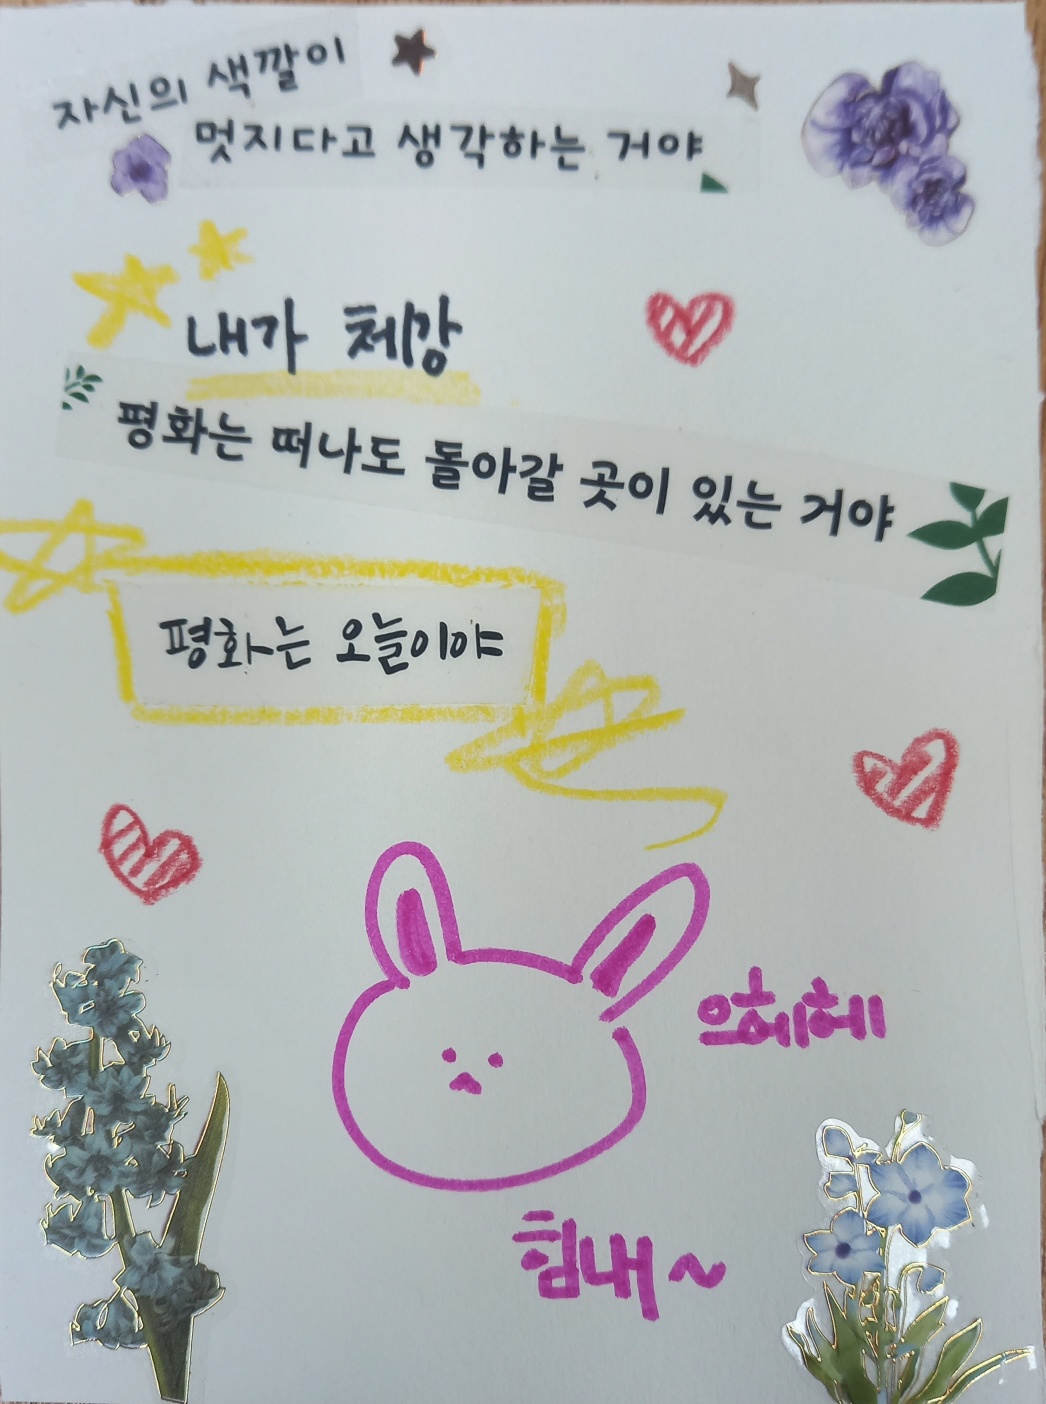 자신의 색깔이
멋지다고 생각하는 거야
내가 체강
평화는 떠나도 돌아갈 곳이 있는 거야
평화는 오늘이야
으헤헤
힘내~